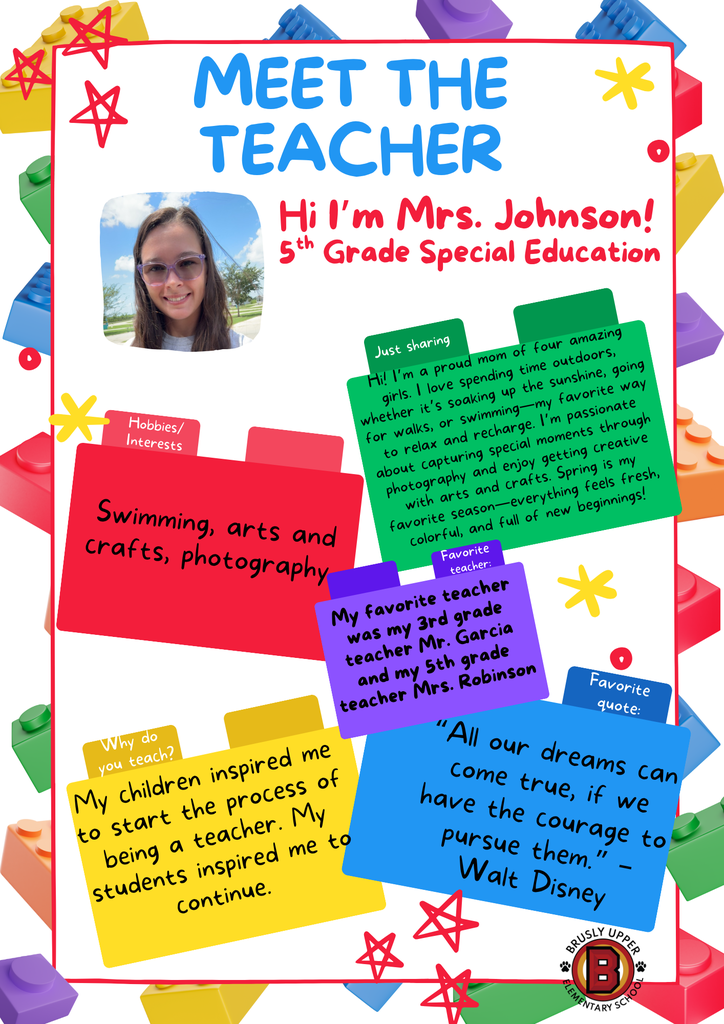 MEET THE
TEACHER
Hi I'm Mrs. Johnson!
5th Grade Special Education
Just sharing
Hi! I'm a proud mom of four amazing
girls. I love spending time outdoors,
whether it's soaking up the sunshine, going
for walks, or swimming—my favorite way
to relax and recharge. I'm passionate
about capturing special moments through
photography and enjoy getting creative
with arts and crafts. Spring is my
favorite season—everything feels fresh,
colorful, and full of new beginnings!
Hobbies/
Interests
Swimming, arts and
crafts, photography
Favorite
teacher:
My favorite teacher
was my 3rd grade
teacher Mr. Garcia
and my 5th grade
teacher Mrs. Robinson
Why do
you teach?
My children inspired me
to start the process of
being a teacher. My
students inspired me to
continue.
Favorite
quote:
"All our dreams can
come true, if we
have the courage to
pursue them." –
Walt Disney
BRUSLY UPPER
B
ELEMENTARY SCHOOL